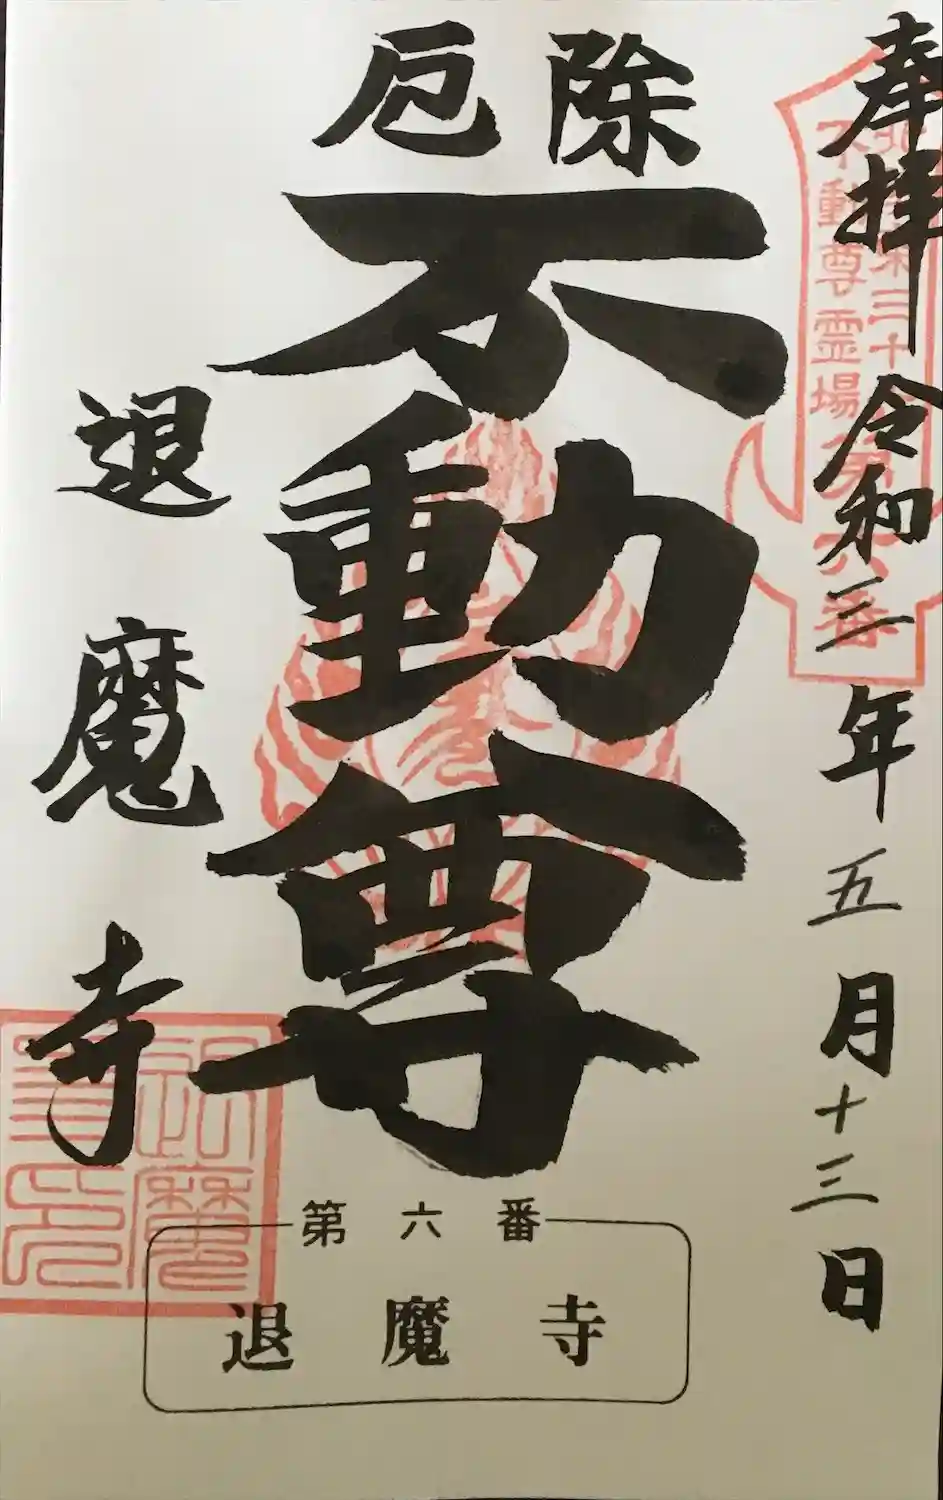 奉拝 令和三年五月十三日
不動尊霊場
第六番
厄除
不動尊
退魔寺
第六番
退魔寺